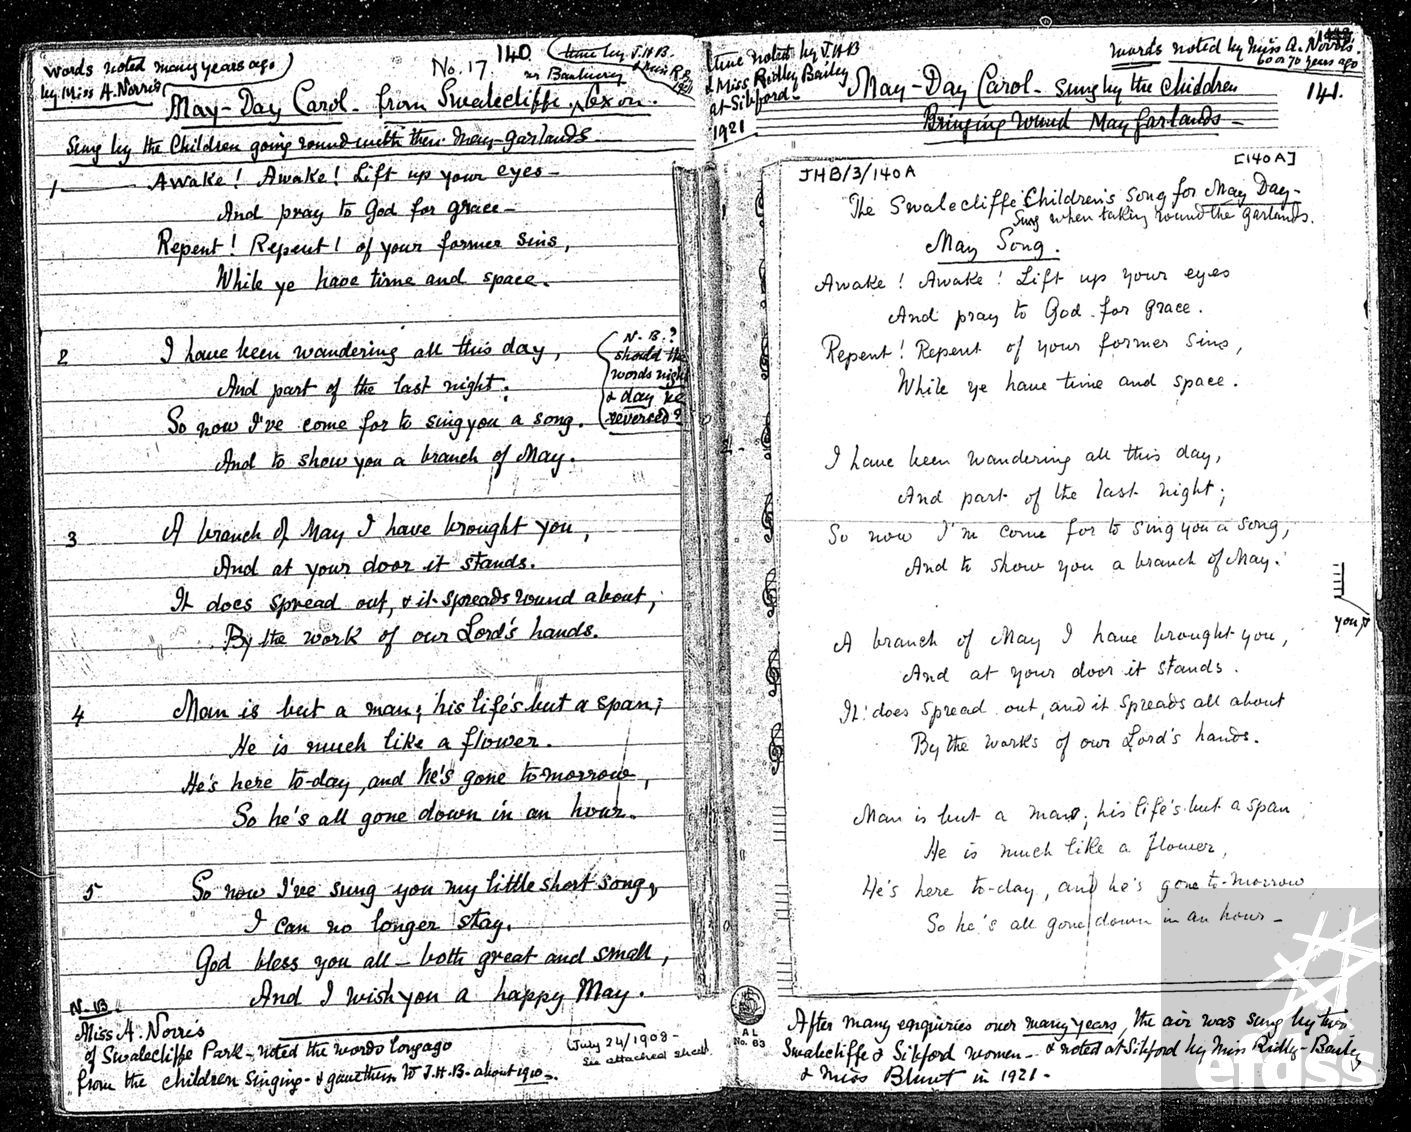 words noted many years ago)
by Miss A. Norris
No. 17
140
(tune by J.H.B.
nr Banbury & Miss R.B.
1921
May-Day Carol - from Swalecliffe, Oxon.
Sung by the Children going round with their May-garlands
1 Awake! Awake! Lift up your eyes -
And pray to God for grace -
Repent! Repent! of your former sins,
While ye have time and space.
2 I have been wandering all this day,
And part of the last night;
So now I've come for to sing you a song.
And to show you a branch of May.
(N.B.?
should the
words night
& day be
reversed?
3 A branch of May I have brought you,
And at your door it stands.
It does spread out, & it spreads round about,
By the work of our Lord's hands.
4 Man is but a man; his life's but a span;
He is much like a flower.
He's here to-day, and he's gone to-morrow,
So he's all gone down in an hour.
5 So now I've sung you my little short song,
I can no longer stay.
God bless you all - both great and small,
And I wish you a happy May.
N.B.
Miss A. Norris
of Swalecliffe Park - noted the words long ago
from the children singing - & gave them to J.H.B. about 1910.
(July 24/1908 -
See attached sheet.
tune noted by J.H.B
& Miss Ridley Bailey
at Sibford -
1921
words noted by Miss A. Norris.
60 or 70 years ago
May-Day Carol - sung by the children
141.
Bringing round May garlands -
JHB/3/140A
[140A]
The Swalecliffe Children's Song for May Day -
Sung when taking round the garlands.
May Song.
Awake! Awake! Lift up your eyes
And pray to God for grace.
Repent! Repent of your former sins,
While ye have time and space.
I have been wandering all this day,
And part of the last night;
So now I'm come for to sing you a song,
And to show you a branch of May.
A branch of May I have brought you,
And at your door it stands.
It does spread out, and it spreads all about
By the works of our Lord's hands.
Man is but a man; his life's but a span
He is much like a flower,
He's here to-day, and he's gone to-morrow
So he's all gone down in an hour -
you,
AL
No. 63
After many enquiries over many years, the air was sung by two
Swalecliffe & Sibford women - & noted at Sibford by Miss Ridley-Bailey
& Miss Blunt in 1921 -
efdss
english folk dance and song society